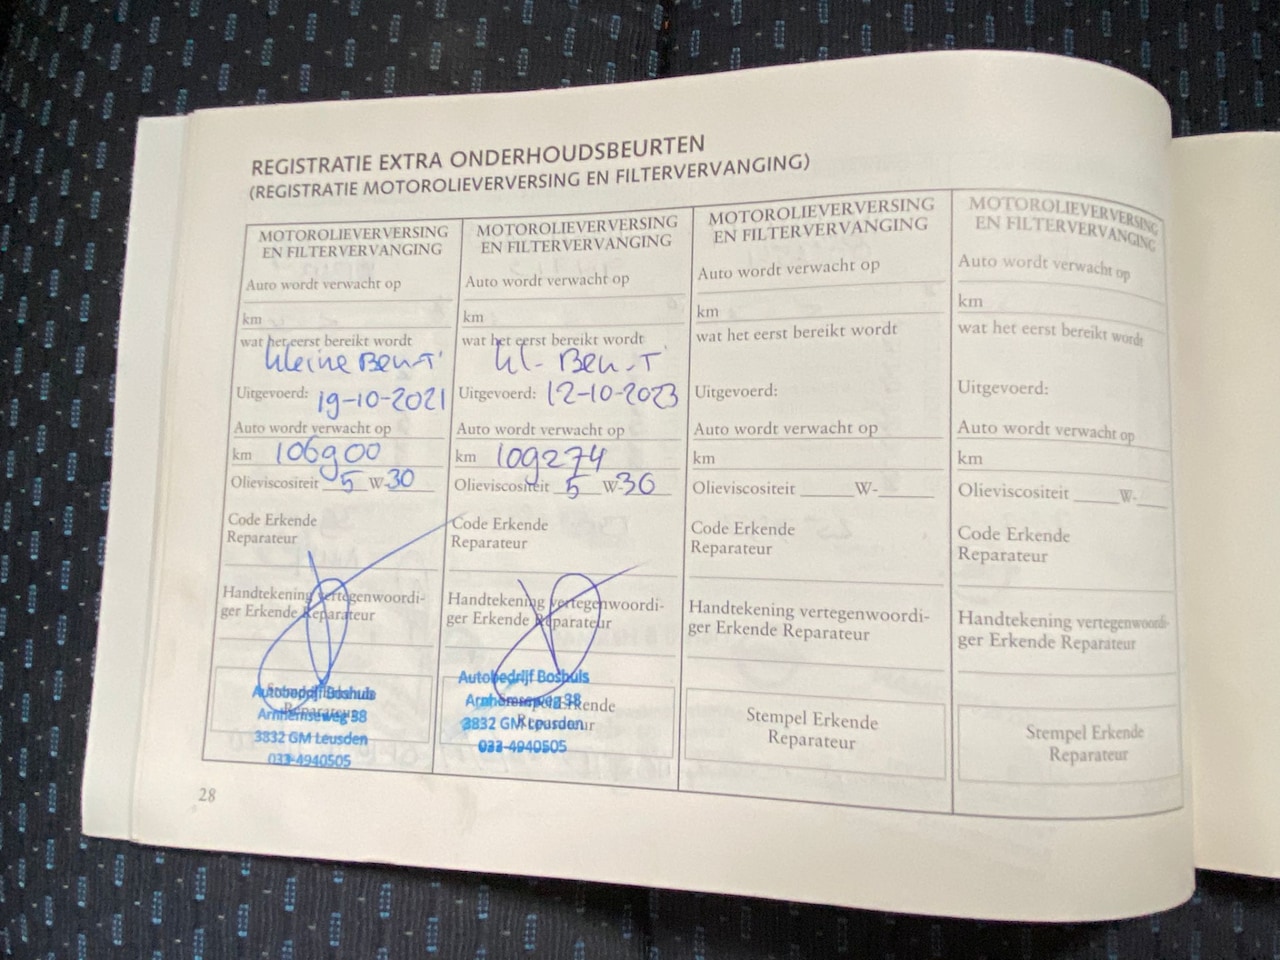 REGISTRATIE EXTRA ONDERHOUDSBEURTEN
(REGISTRATIE MOTOROLIEVERVERSING EN FILTERVERVANGING)
MOTOROLIEVERVERSING
EN FILTERVERVANGING
Auto wordt verwacht op
km
wat het eerst bereikt wordt
kleine Beurt
Uitgevoerd: 19-10-2021
Auto wordt verwacht op
km 106900
Olieviscositeit 5 W-30
Code Erkende
Reparateur
Handtekening vertegenwoordi-
ger Erkende Reparateur
Autobedrijf Boshuis
Arnhemseweg 38
3832 GM Leusden
033-4940505
MOTOROLIEVERVERSING
EN FILTERVERVANGING
Auto wordt verwacht op
km
wat het eerst bereikt wordt
kl- Beurt
Uitgevoerd: 12-10-2023
Auto wordt verwacht op
km 109274
Olieviscositeit 5 W-30
Code Erkende
Reparateur
Handtekening vertegenwoordi-
ger Erkende Reparateur
Autobedrijf Boshuis
Arnhemseweg 38
3832 GM Leusden
033-4940505
MOTOROLIEVERVERSING
EN FILTERVERVANGING
Auto wordt verwacht op
km
wat het eerst bereikt wordt
Uitgevoerd:
Auto wordt verwacht op
km
Olieviscositeit ______W-______
Code Erkende
Reparateur
Handtekening vertegenwoordi-
ger Erkende Reparateur
Stempel Erkende
Reparateur
MOTOROLIEVERVERSING
EN FILTERVERVANGING
Auto wordt verwacht op
km
wat het eerst bereikt wordt
Uitgevoerd:
Auto wordt verwacht op
km
Olieviscositeit _____W-___
Code Erkende
Reparateur
Handtekening vertegenwoordi-
ger Erkende Reparateur
Stempel Erkende
Reparateur
28